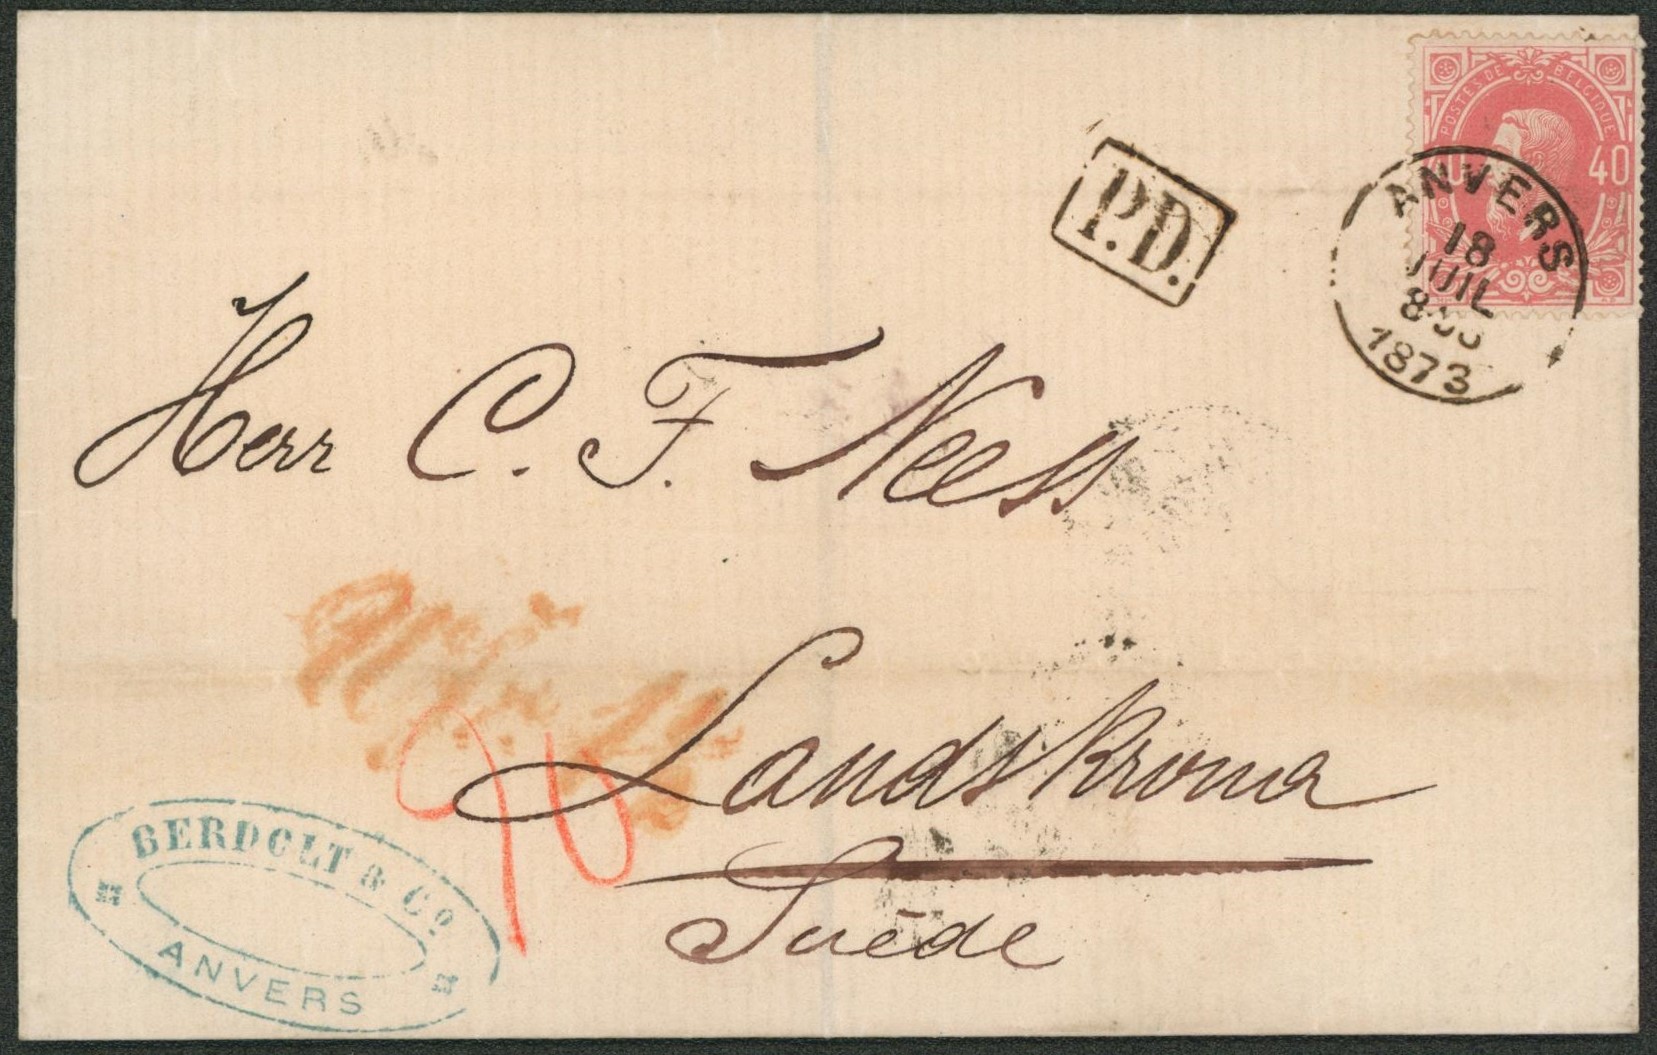 POSTES DE BELGIQUE
40 40
P.D.
ANVERS
18
JUIL
1873
Herr C. F. Neess
Landskrona
Suède
BERDOLT & Cº
ANVERS